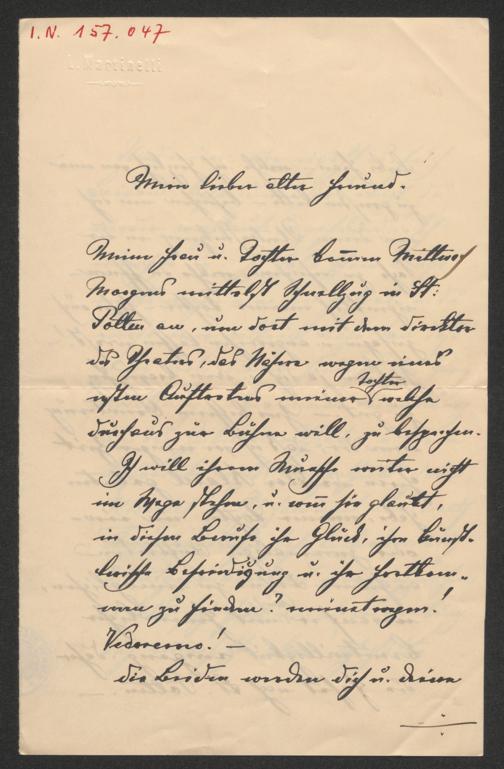 I.N. 157.047
L. Martinelli
Mein lieber alter Freund.
Meine Frau u. Tochter kom̅en Mittwoch
Morgens mittelst Schnellzug in St:
Pölten an, um dort mit dem Direktor
des Theaters, das Nähere wegen eines
ersten Auftretens meiner Tochter welche
durchaus zur Bühne will, zu besprechen.
Ich will ihrem Wunsche weiter nicht
im Wege stehen, u. wen̅ sie glaubt,
in diesem Berufe ihr Glück, ihre künst-
lerische Befriedigung u. ihr Fortkom-
men zu finden? meinetwegen!
Vederemo! —
Die Beiden werden dich u. deine